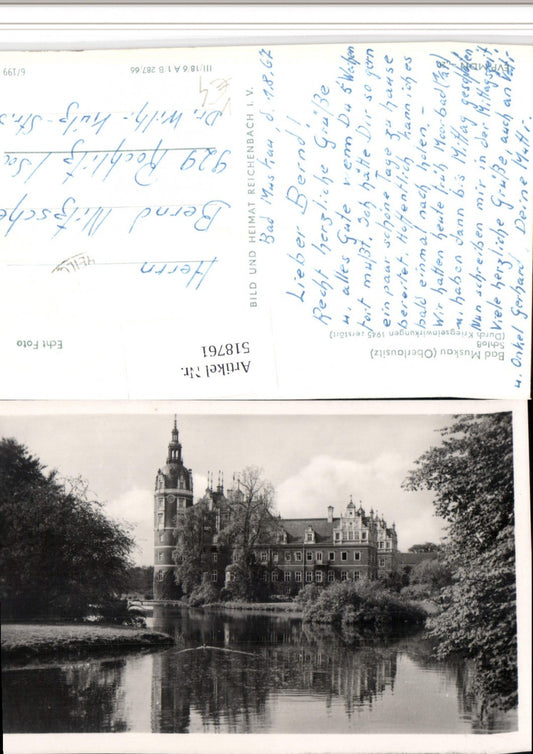 Bad Muskau, d. 1.8.67
Lieber Bernd!
Recht herzliche Grüße
u. alles Gute wenn Du 5 Wochen
fort mußt. Ich hätte Dir so gern
ein paar schöne Tage zu Hause
bereitet. Hoffentlich kann ich es
bald einmal nach holen.
Wir hatten heute früh Moorbad
u. haben dann bis Mittag geschlafen
Nun schreiben mir in der Mittagszeit
Viele herzliche Grüße auch an
u. Onkel Gerhard. Deine Mutti.
Bad Muskau (Oberlausitz)
Schloß
(Durch Kriegseinwirkungen 1945 zerstört)
BILD UND HEIMAT REICHENBACH I. V.
III/18/6 A 1 B 287/66
6/199
Herrn
Bernd Nitzsche
929 Rochlitz/Sa
Dr. Wilh.-Külz-Str. 3
Echt Foto
Artikel Nr.
518761